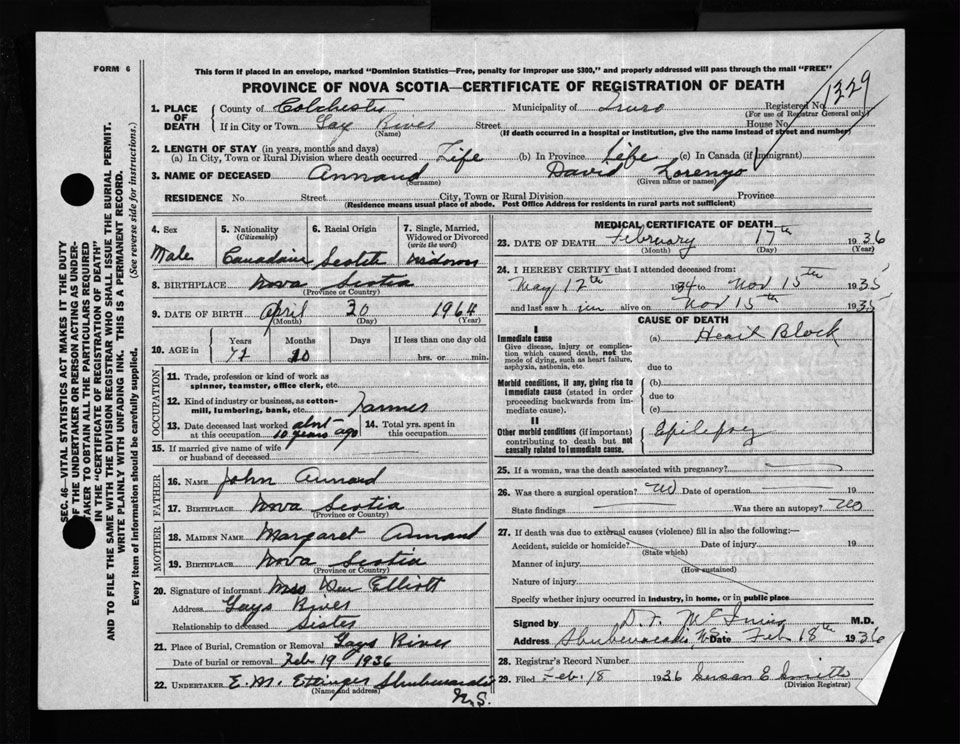 FORM 6
This form if placed in an envelope, marked "Dominion Statistics—Free, penalty for improper use $300," and properly addressed will pass through the mail "FREE"
PROVINCE OF NOVA SCOTIA—CERTIFICATE OF REGISTRATION OF DEATH
1329
1. PLACE OF DEATH
County of Colchester Municipality of Truro Registered No.
(For use of Registrar General only)
If in City or Town Gay River Street House No.
(Name) (If death occurred in a hospital or institution, give the name instead of street and number)
2. LENGTH OF STAY (in years, months and days)
(a) In City, Town or Rural Division where death occurred Life (b) In Province Life (c) In Canada (if immigrant)
3. NAME OF DECEASED Annand David Lorenzo
(Surname) (Given name or names)
RESIDENCE No. Street City, Town or Rural Division Province
(Residence means usual place of abode. Post Office Address for residents in rural parts not sufficient)
4. Sex
Male
5. Nationality
(Citizenship)
6. Racial Origin
Scotch
7. Single, Married, Widowed or Divorced
(write the word)
8. BIRTHPLACE Nova Scotia
(Province or Country)
9. DATE OF BIRTH April 20
(Month) (Day) (Year)
10. AGE in
Years Months Days If less than one day old
71 10 hrs. or min.
OCCUPATION
11. Trade, profession or kind of work as spinner, teamster, office clerk, etc.
12. Kind of industry or business, as cotton-mill, lumbering, bank, etc. Farmer
13. Date deceased last worked at this occupation abot 10 years ago
14. Total yrs. spent in this occupation
15. If married give name of wife or husband of deceased
FATHER
16. NAME John Annand
17. BIRTHPLACE Nova Scotia
(Province or Country)
MOTHER
18. MAIDEN NAME Margaret Annand
19. BIRTHPLACE Nova Scotia
(Province or Country)
20. Signature of informant Mrs Wm Elliott
Address Gays River
Relationship to deceased Sister
21. Place of Burial, Cremation or Removal Gays River
Date of burial or removal Feb 19 1936
22. UNDERTAKER E. M. Ettinger Shubenacadie
(Name and address) N.S.
MEDICAL CERTIFICATE OF DEATH
23. DATE OF DEATH February 17th 1936
(Month) (Day) (Year)
24. I HEREBY CERTIFY that I attended deceased from:
May 12th 1934 to Nov 15th 1935
and last saw him alive on Nov 15th 1935
CAUSE OF DEATH
I
Immediate cause
Give disease, injury or complication which caused death, not the mode of dying, such as heart failure, asphyxia, asthenia, etc.
(a) Heart Block
due to
Morbid conditions, if any, giving rise to immediate cause (stated in order proceeding backwards from immediate cause).
(b)
due to
(c)
II
Other morbid conditions (if important) contributing to death but not causally related to immediate cause.
Epilepsy
25. If a woman, was the death associated with pregnancy?
26. Was there a surgical operation? No Date of operation 19
State findings Was there an autopsy? No
27. If death was due to external causes (violence) fill in also the following:—
Accident, suicide or homicide? Date of injury 19
(State which)
Manner of injury
(How sustained)
Nature of injury
Specify whether injury occurred in industry, in home, or in public place
Signed by M.D.
Address Shubenacadie, N.S. Date Feb 18th 1936
28. Registrar's Record Number
29. Filed Feb. 18 1936 Susan E Smith
(Division Registrar)
SEC. 46—VITAL STATISTICS ACT MAKES IT THE DUTY
OF THE UNDERTAKER OR PERSON ACTING AS UNDER-
TAKER TO OBTAIN ALL THE PARTICULARS REQUIRED
IN THE "CERTIFICATE OF REGISTRATION OF DEATH"
AND TO FILE THE SAME WITH THE DIVISION REGISTRAR WHO SHALL ISSUE THE BURIAL PERMIT.
WRITE PLAINLY WITH UNFADING INK. THIS IS A PERMANENT RECORD.
Every item of information should be carefully supplied. (See reverse side for instructions.)